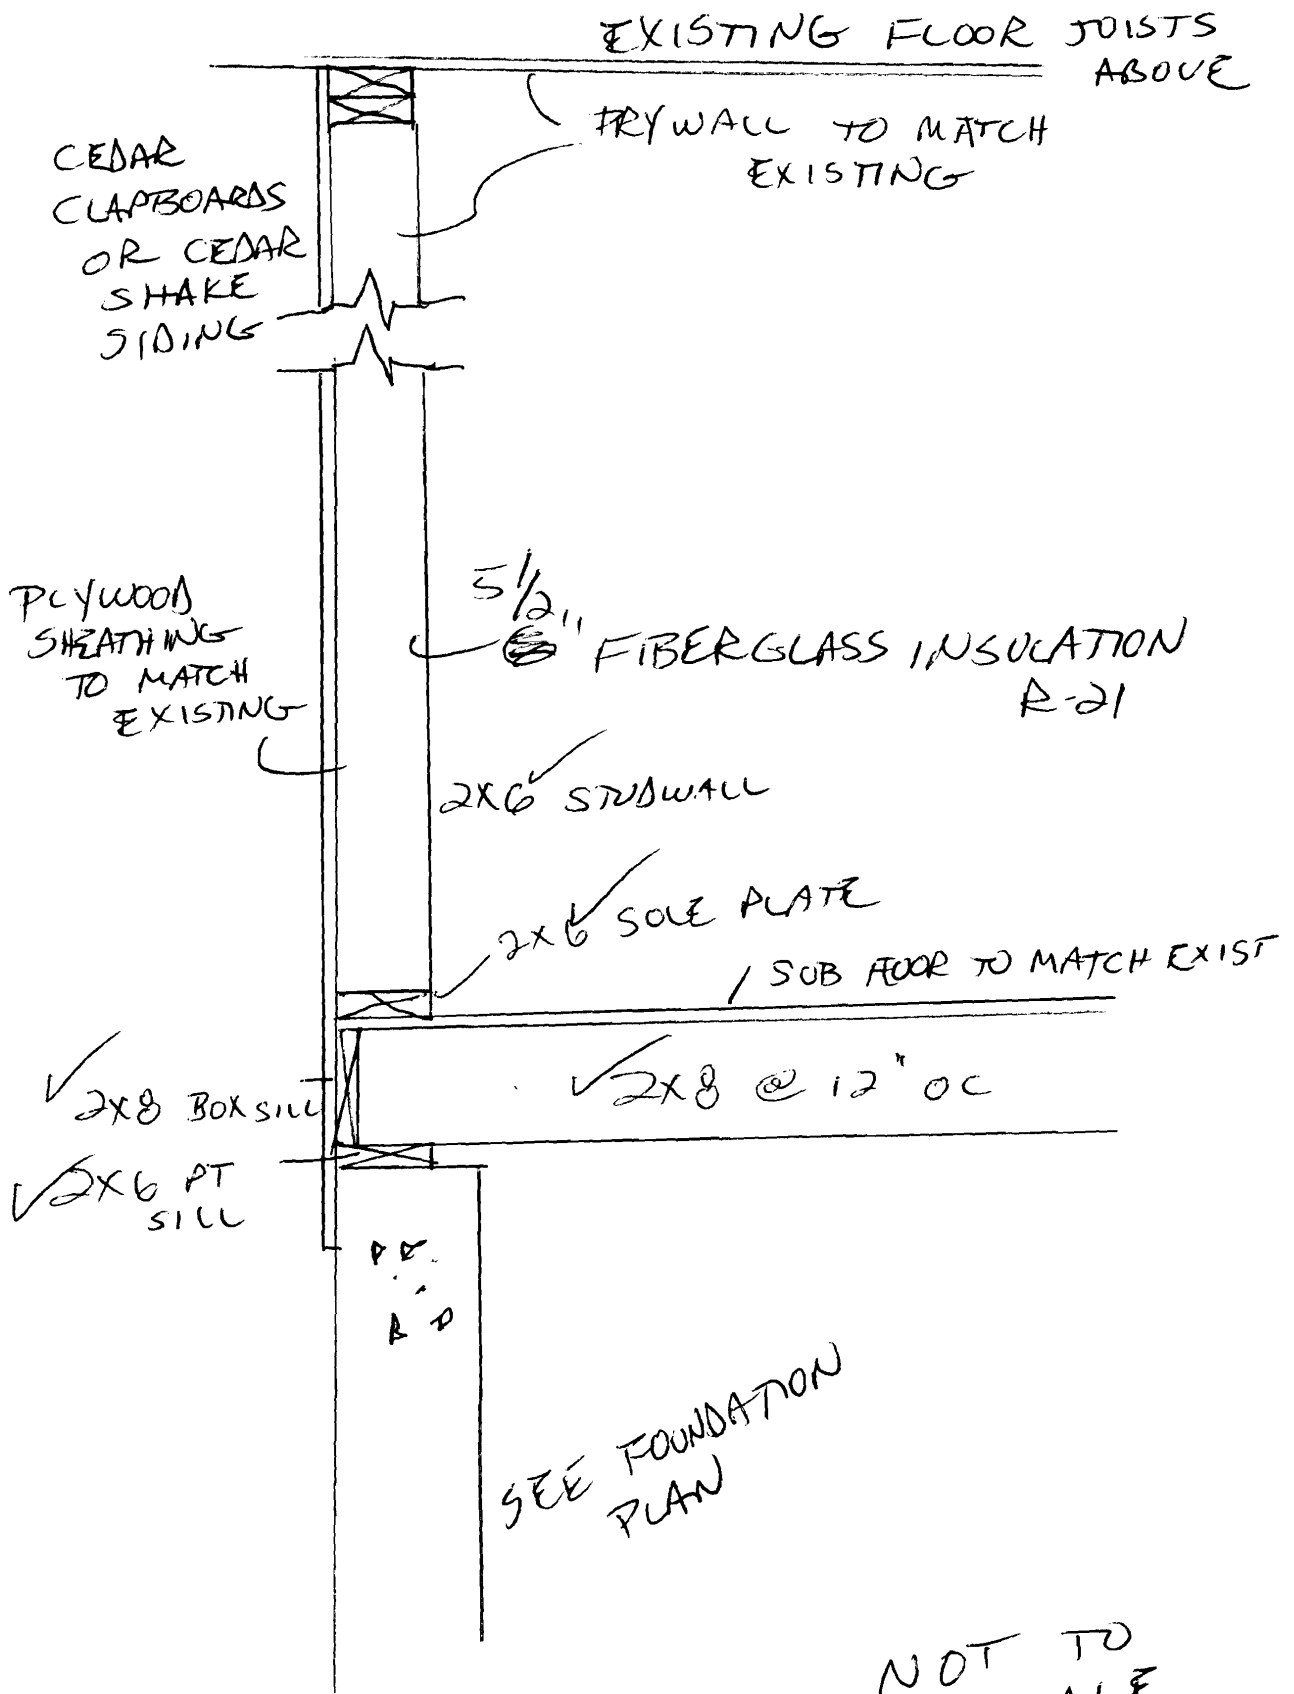 EXISTING FLOOR JOISTS
ABOVE
DRYWALL TO MATCH
EXISTING
CEDAR
CLAPBOARDS
OR CEDAR
SHAKE
SIDING
PLYWOOD
SHEATHING
TO MATCH
EXISTING
5 1/2"
" FIBERGLASS INSULATION
R-21
2X6 STUDWALL
2X6 SOLE PLATE
SUB FLOOR TO MATCH EXIST
2X8 BOX SILL
2X8 @ 12" OC
2X6 PT
SILL
SEE FOUNDATION
PLAN
NOT TO